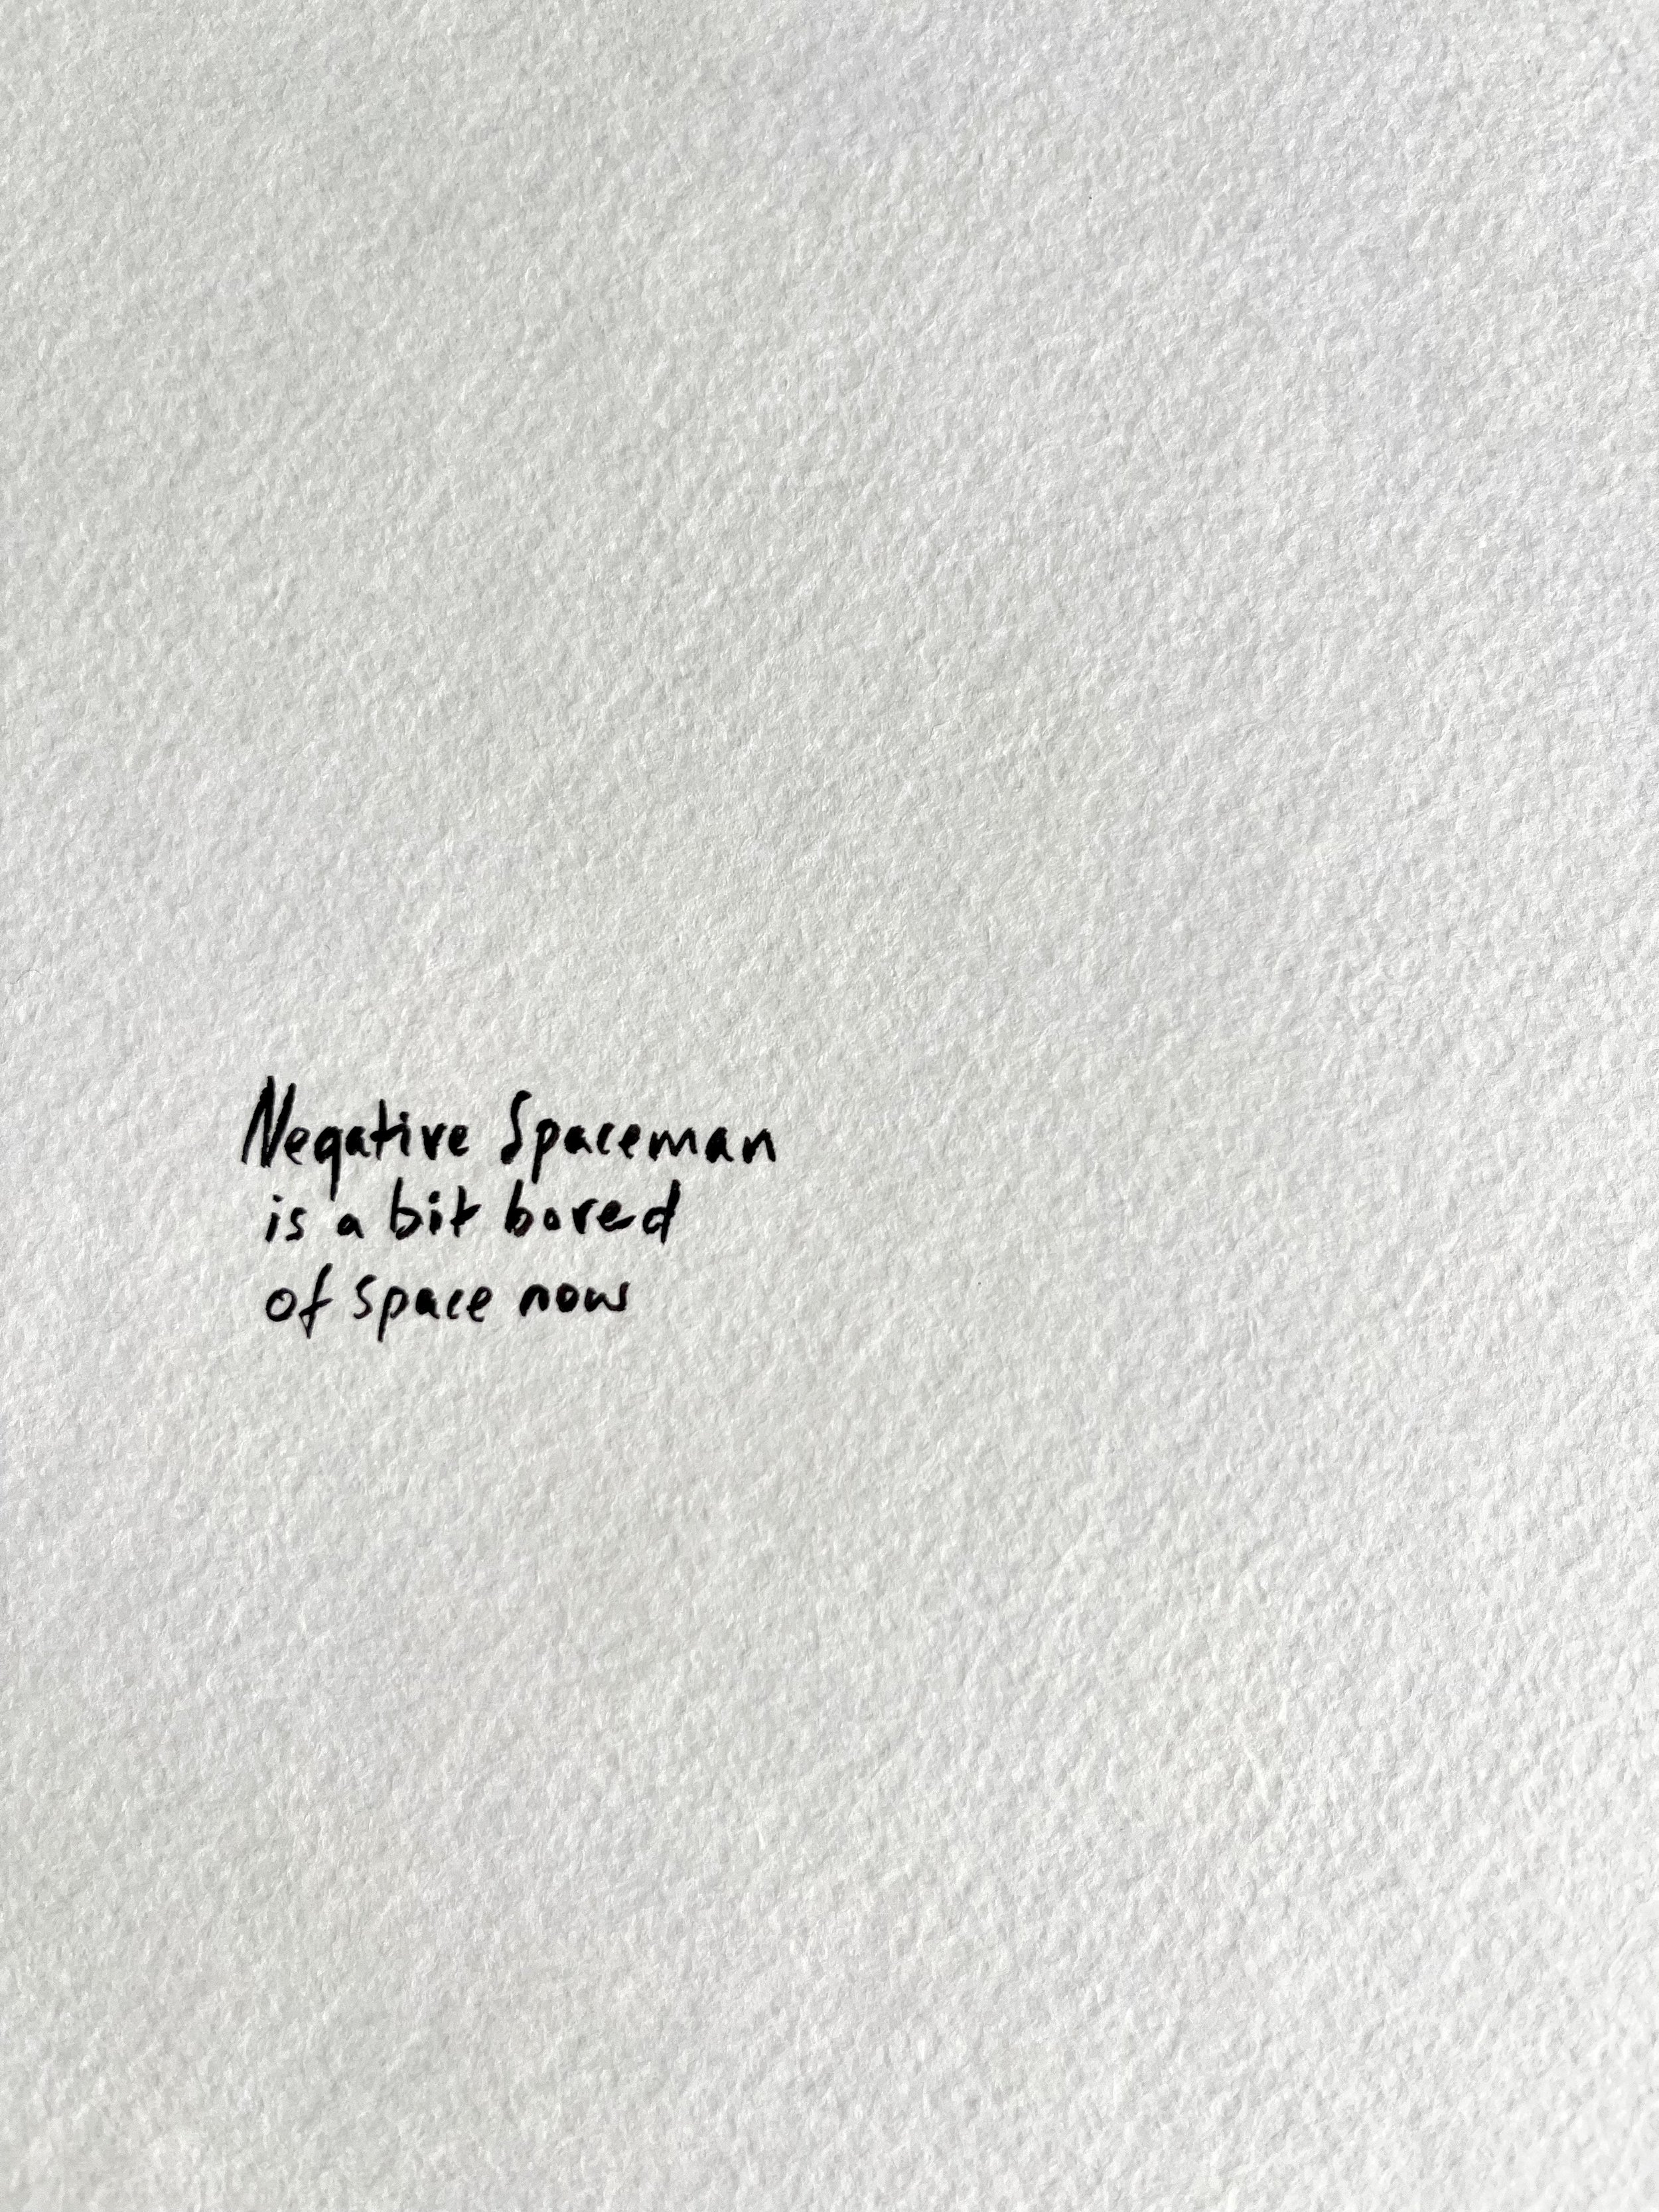 Negative Spaceman
is a bit bored
of space now